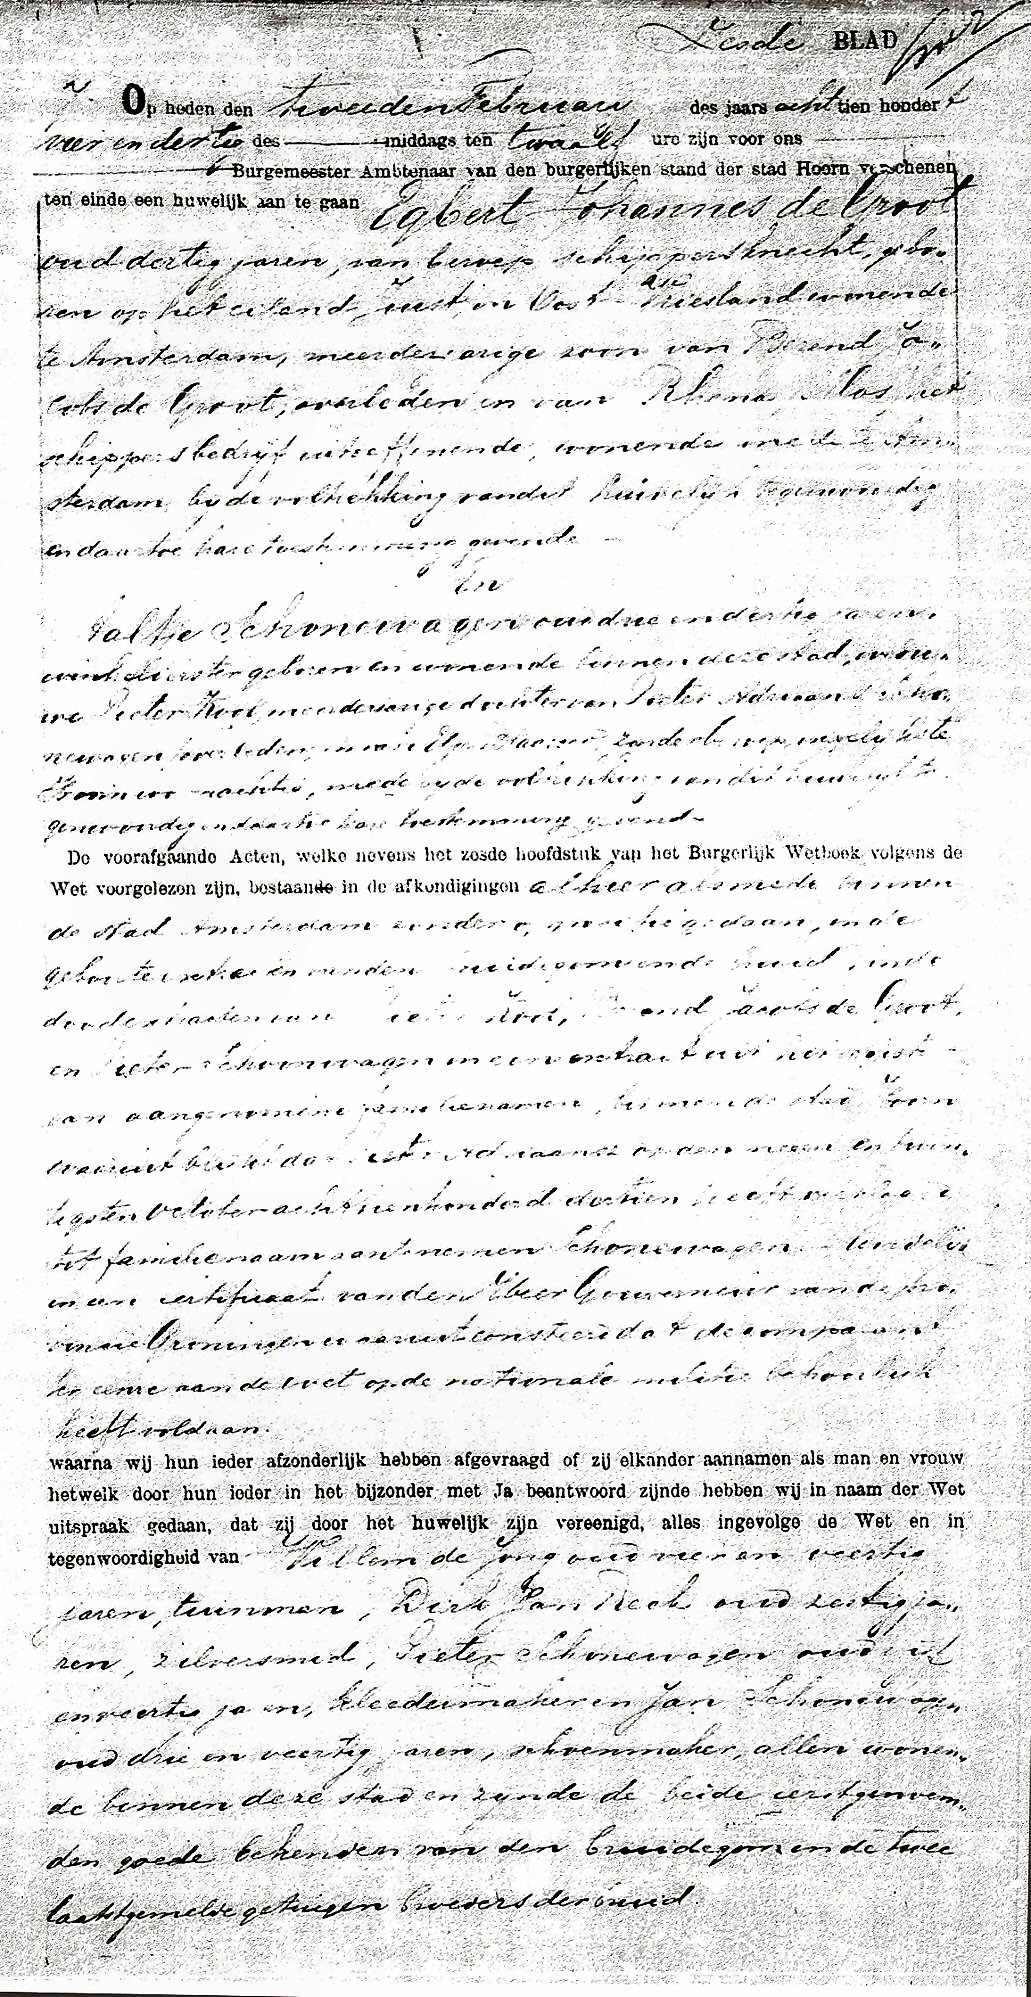 Zesde BLAD
Op heden den tweeden Februari des jaars achttien honderd
vier en dertig des middags ten twaalf ure zijn voor ons
Burgemeester Ambtenaar van den burgerlijken stand der stad Hoorn verschenen
ten einde een huwelijk aan te gaan Egbert Johannes de Groot
oud dertig jaren, van beroep schippersknecht, gebo-
ren op het eiland Juist in Oost Vriesland wonende
te Amsterdam, meerderjarige zoon van Berend Ja-
cobs de Groot, overleden en van Rhena Mos, het
schippersbedrijf uitoeffenende, wonende mede te Am-
sterdam, by de voltrekking van dit huwelijk tegenwoordig
en daartoe hare toestemming gevende
En
Aaltje Schonewagen oud drie en dertig jaren,
winkelierster geboren en wonende binnen deze stad, wedu-
we Pieter Kool, meerderjarige dochter van Pieter Adriaansz Scho-
newagen, overleden, en van zonder beroep,
mede by de voltrekking van dit huwelijk te-
genwoordig en daartoe hare toestemming gevend
De voorafgaande Acten, welke nevens het zesde hoofdstuk van het Burgerlijk Wetboek volgens de
Wet voorgelezen zijn, bestaande in de afkondigingen alhier alsmede binnen
de stad Amsterdam zonder gedaan, in de
geboorte extracten van den bruidegom en de bruid, in de
dood extracten van Pieter Kool, Berend Jacobs de Groot,
en Pieter Schoonwagen en een extract uit het register
van aangenomene familienamen, binnen de stad Hoorn
waaruit blykt dat Pieter Adriaansz op den negen en twin-
tigsten October achttienhonderd dertien heeft verklaard
tot familienaam aantenemen Schonewagen. Eindelijk
in een certificaat van den Heer Gouverneur van de pro-
vincie Groningen waaruit consteerd dat de comparant
ter eenre aan de wet op de nationale militie behoorlijk
heeft voldaan.
waarna wij hun ieder afzonderlijk hebben afgevraagd of zij elkander aannamen als man en vrouw
hetwelk door hun ieder in het bijzonder met Ja beantwoord zijnde hebben wij in naam der Wet
uitspraak gedaan, dat zij door het huwelijk zijn vereenigd, alles ingevolge de Wet en in
tegenwoordigheid van Willem de Jong oud vier en veertig
jaren, tuinman, Dirk Jan Reek oud zestig ja-
ren, zilversmid, Pieter Schonewagen oud
en veertig jaren, kleedermaker en Jan Schonewagen
oud drie en veertig jaren, schoenmaker, allen wonen-
de binnen deze stad en zynde de beide eerstgenoem-
den goede bekenden van den bruidegom en de twee
laatstgemelde getuigen broeders der bruid